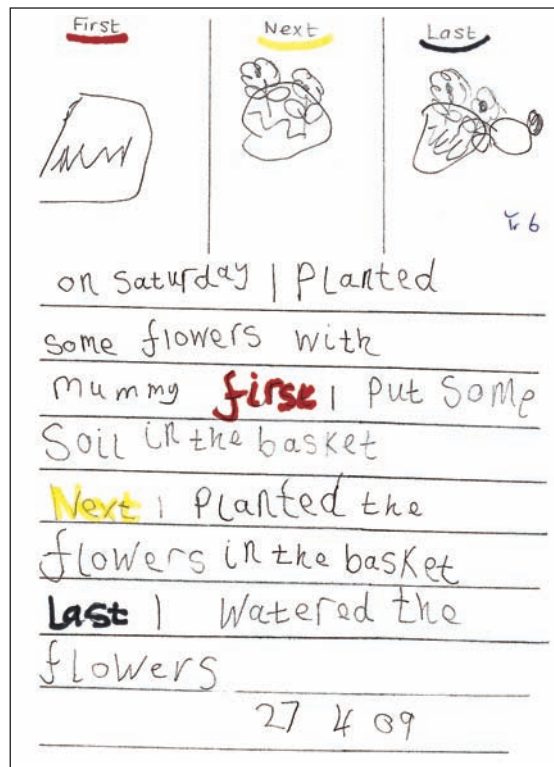 First Next Last
Yr 6
on saturday I Planted
some flowers with
mummy first I put some
Soil in the basket
Next I planted the
flowers in the basket
Last I watered the
flowers
27 4 09